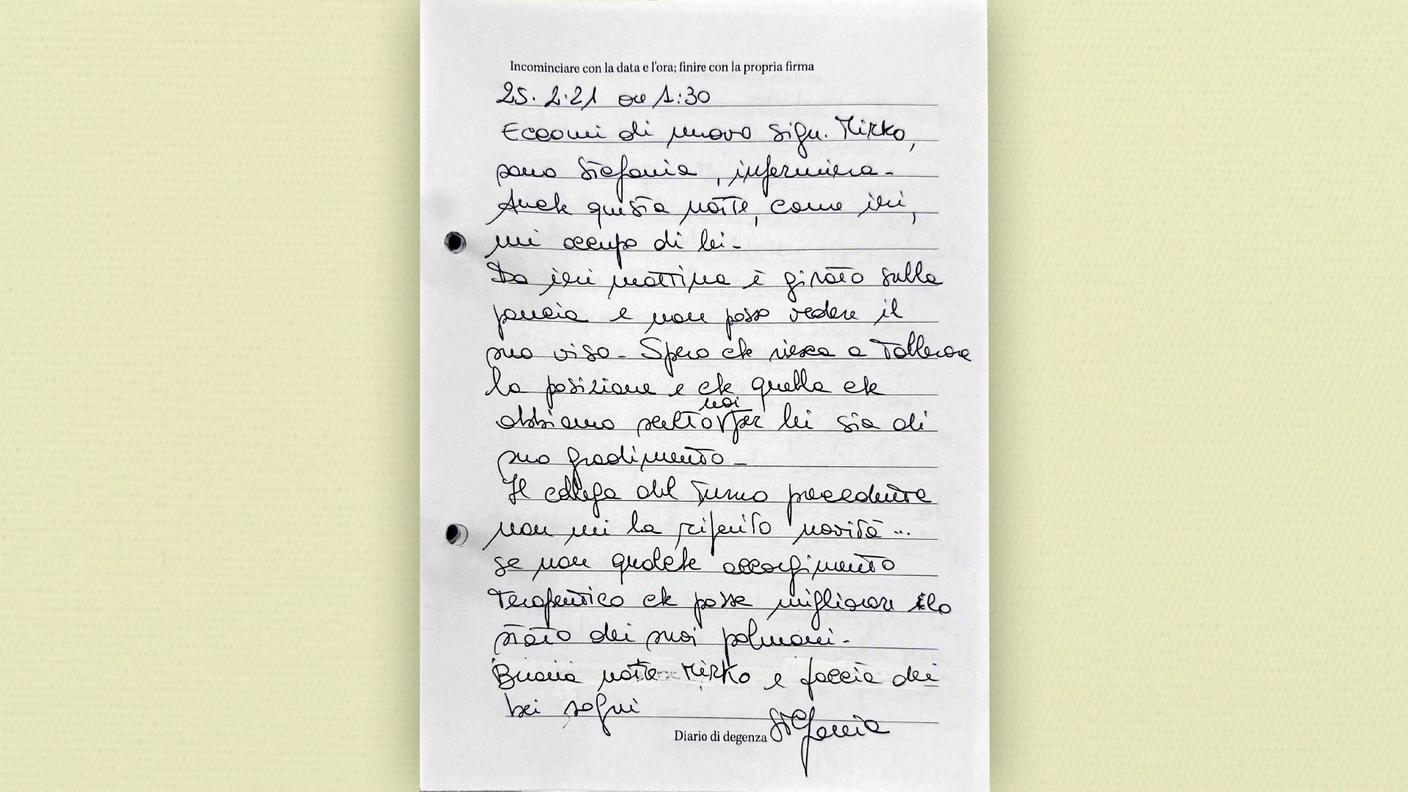 Incominciare con la data e l'ora; finire con la propria firma
25.2.21 ore 1:30
Eccomi di nuovo sign. Mirko,
sono Stefania, infermiera.
Anche questa notte, come ieri,
mi occupo di lei.
Da ieri mattina è girato sulla
pancia e non posso vedere il
suo viso. Spero che riesca a tollerare
la posizione e che quella che
noi
abbiamo scelto per lei sia di
suo gradimento.
Il collega del turno precedente
non mi ha riferito novità...
se non qualche accorgimento
terapeutico che possa migliorare lo
stato dei suoi polmoni.
Buona notte Mirko e faccia dei
bei sogni
Stefania
Diario di degenza